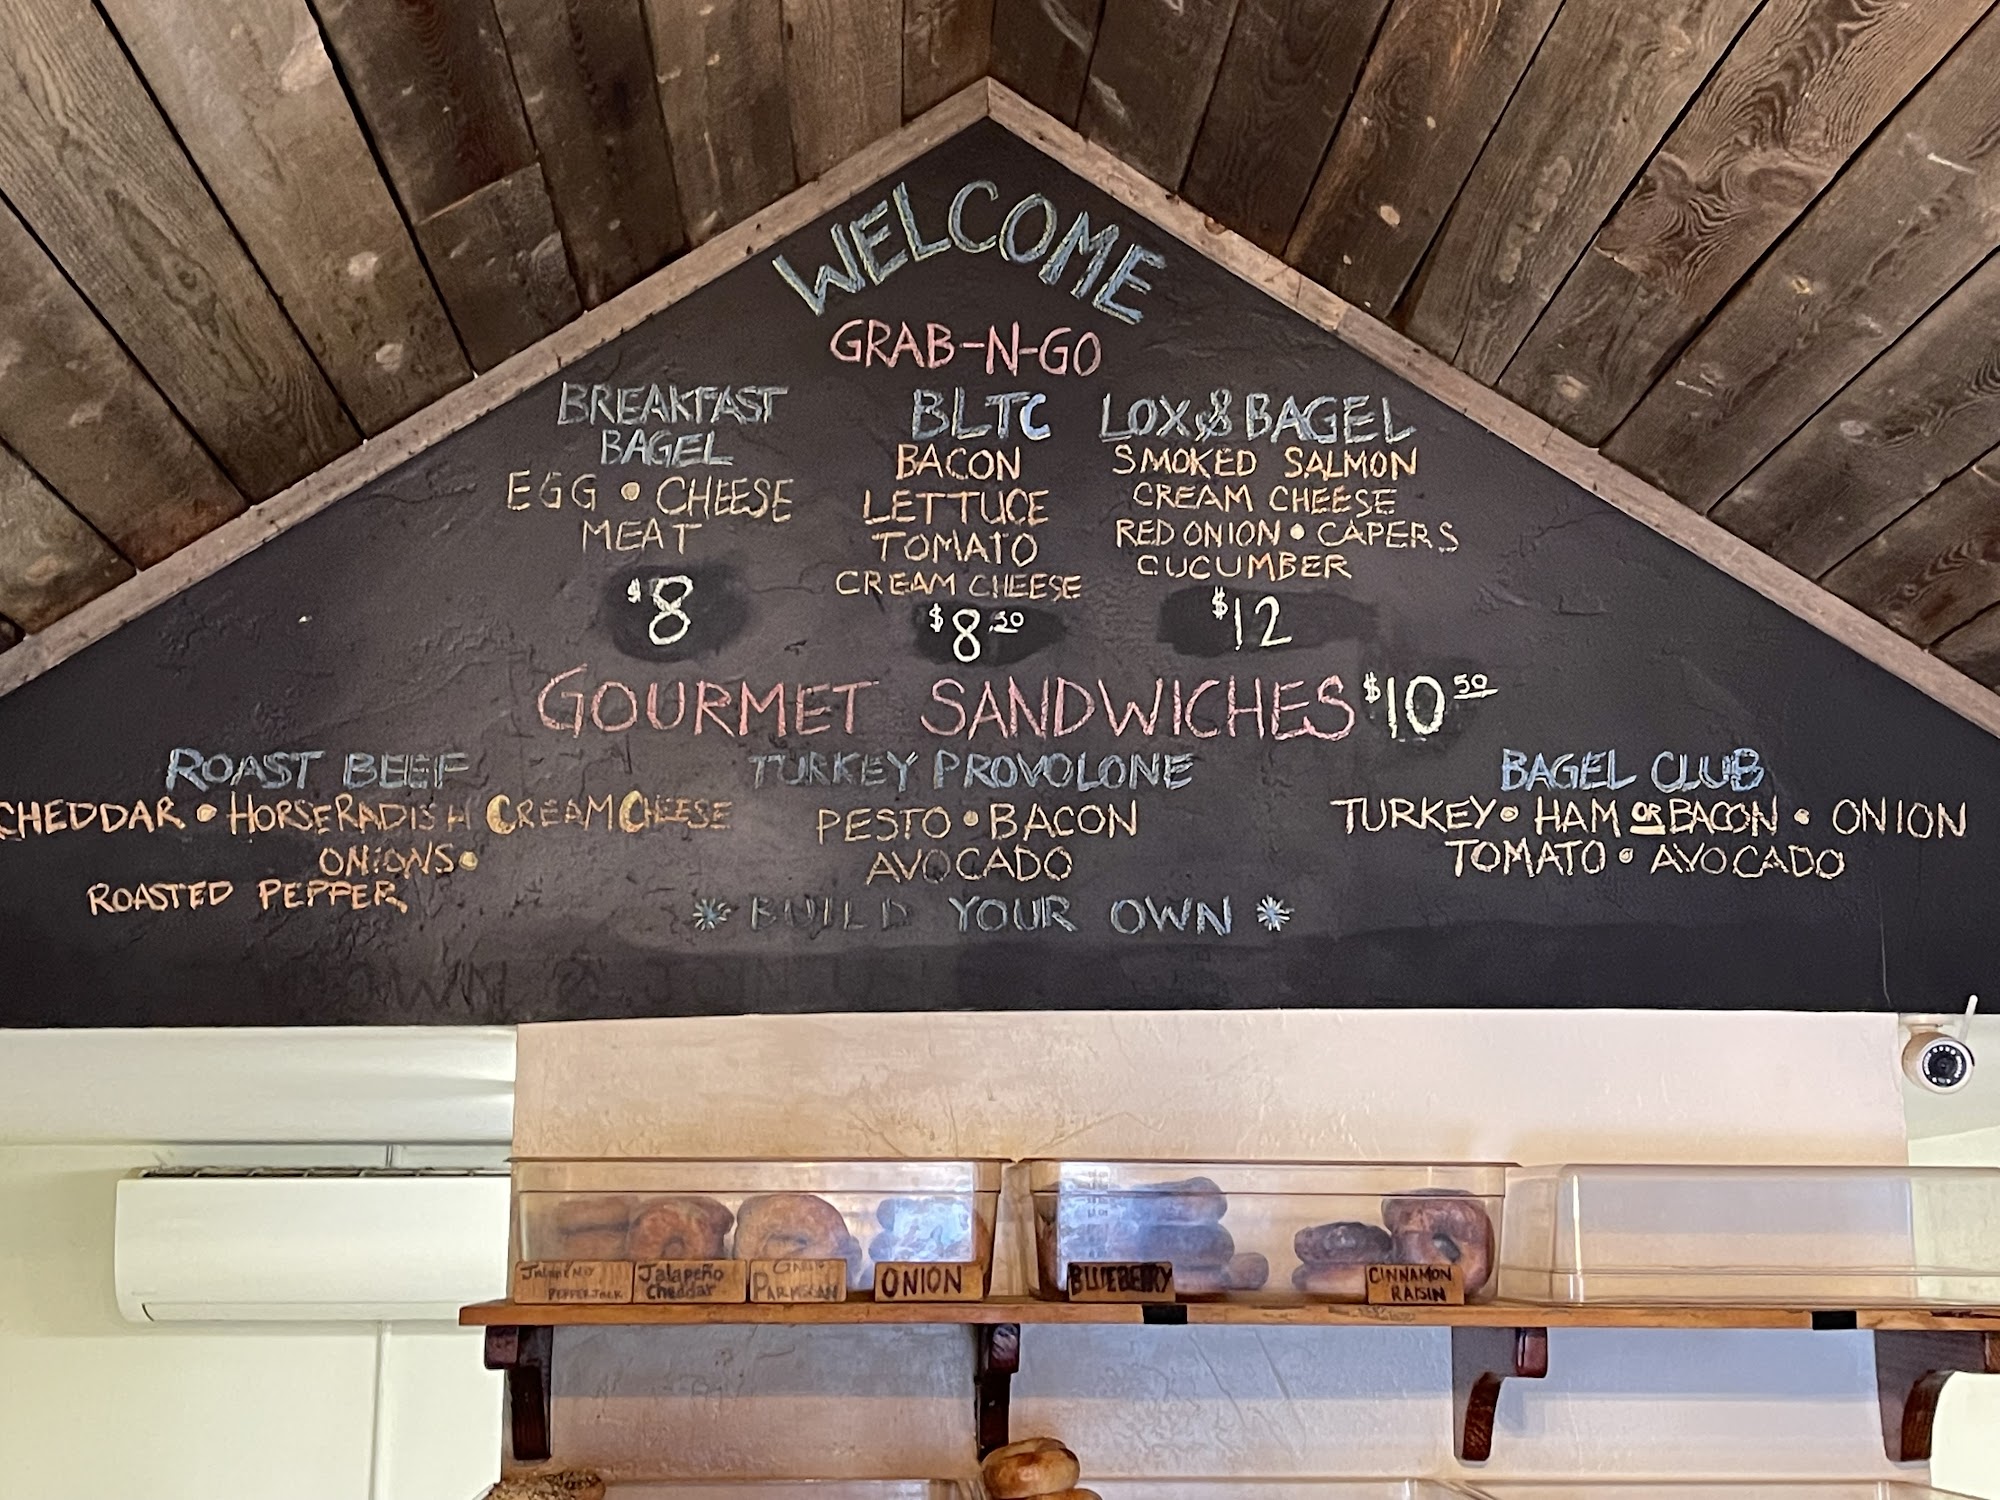 WELCOME
GRAB-N-GO
BREAKFAST
BAGEL
EGG • CHEESE
MEAT
$8
BLTC
BACON
LETTUCE
TOMATO
CREAM CHEESE
$8.50
LOX & BAGEL
SMOKED SALMON
CREAM CHEESE
RED ONION • CAPERS
CUCUMBER
$12
GOURMET SANDWICHES $10 50
ROAST BEEF
CHEDDAR • HORSERADISH CREAM CHEESE
ONIONS •
ROASTED PEPPER
TURKEY PROVOLONE
PESTO • BACON
AVOCADO
BAGEL CLUB
TURKEY • HAM OR BACON • ONION
TOMATO • AVOCADO
* BUILD YOUR OWN *
Jalapeño
PEPPERJACK
Jalapeño
Cheddar
GARLIC
PARMESAN
ONION
BLUEBERRY
CINNAMON
RAISIN